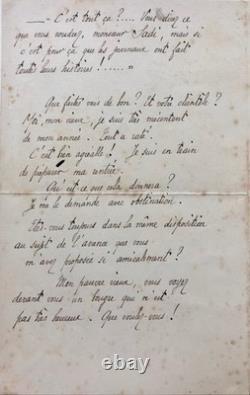 — C'est tout ça ?.... Vous direz ce
que vous voudrez, monsieur Sadi, mais si
c'est pour ça que les journaux ont fait
toutes leurs histoires !......
Que faites-vous de bon ? Et votre clientèle ?
Moi, mon vieux, je suis très mécontent
de mon année. Tout a raté.
C'est bien agréable ! Je suis en train
de préparer ma rentrée.
Qu'est ce que cela donnera ?
Je me le demande avec obstination.
Etes-vous toujours dans la même disposition
au sujet de l'avance que vous
m'avez proposée si amicalement ?
Mon pauvre vieux, vous voyez
devant vous un bougre qui n'est
pas très heureux. Que voulez-vous !
© 123-bay